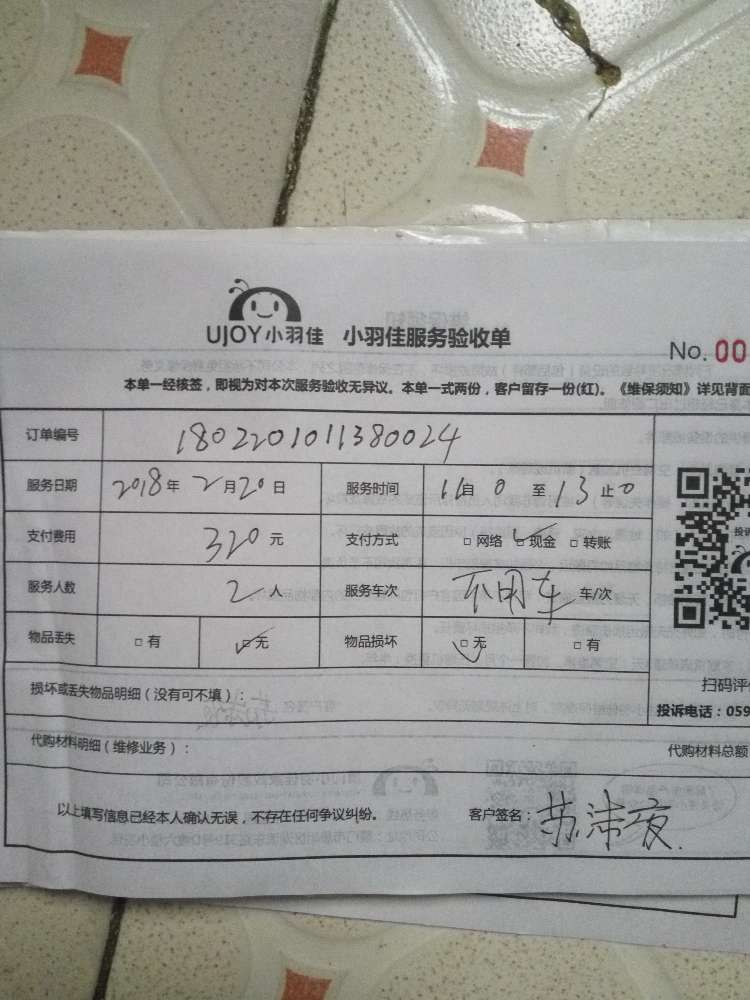 UJOY小羽佳 小羽佳服务验收单
No. 00
本单一经核签，即视为对本次服务验收无异议。本单一式两份，客户留存一份(红)。《维保须知》详见背面
订单编号 1802201011380024
服务日期 2018年 2月20日 服务时间 11自0 至13止0
支付费用 320元 支付方式 □ 网络 □ 现金 □ 转账
服务人数 2人 服务车次 不用车 车/次
物品丢失 □ 有 □ 无 物品损坏 □ 无 □ 有
扫码评
损坏或丢失物品明细（没有可不填）：
投诉电话：059
代购材料明细（维修业务）：
代购材料总额
以上填写信息已经本人确认无误，不存在任何争议纠纷。 客户签名：